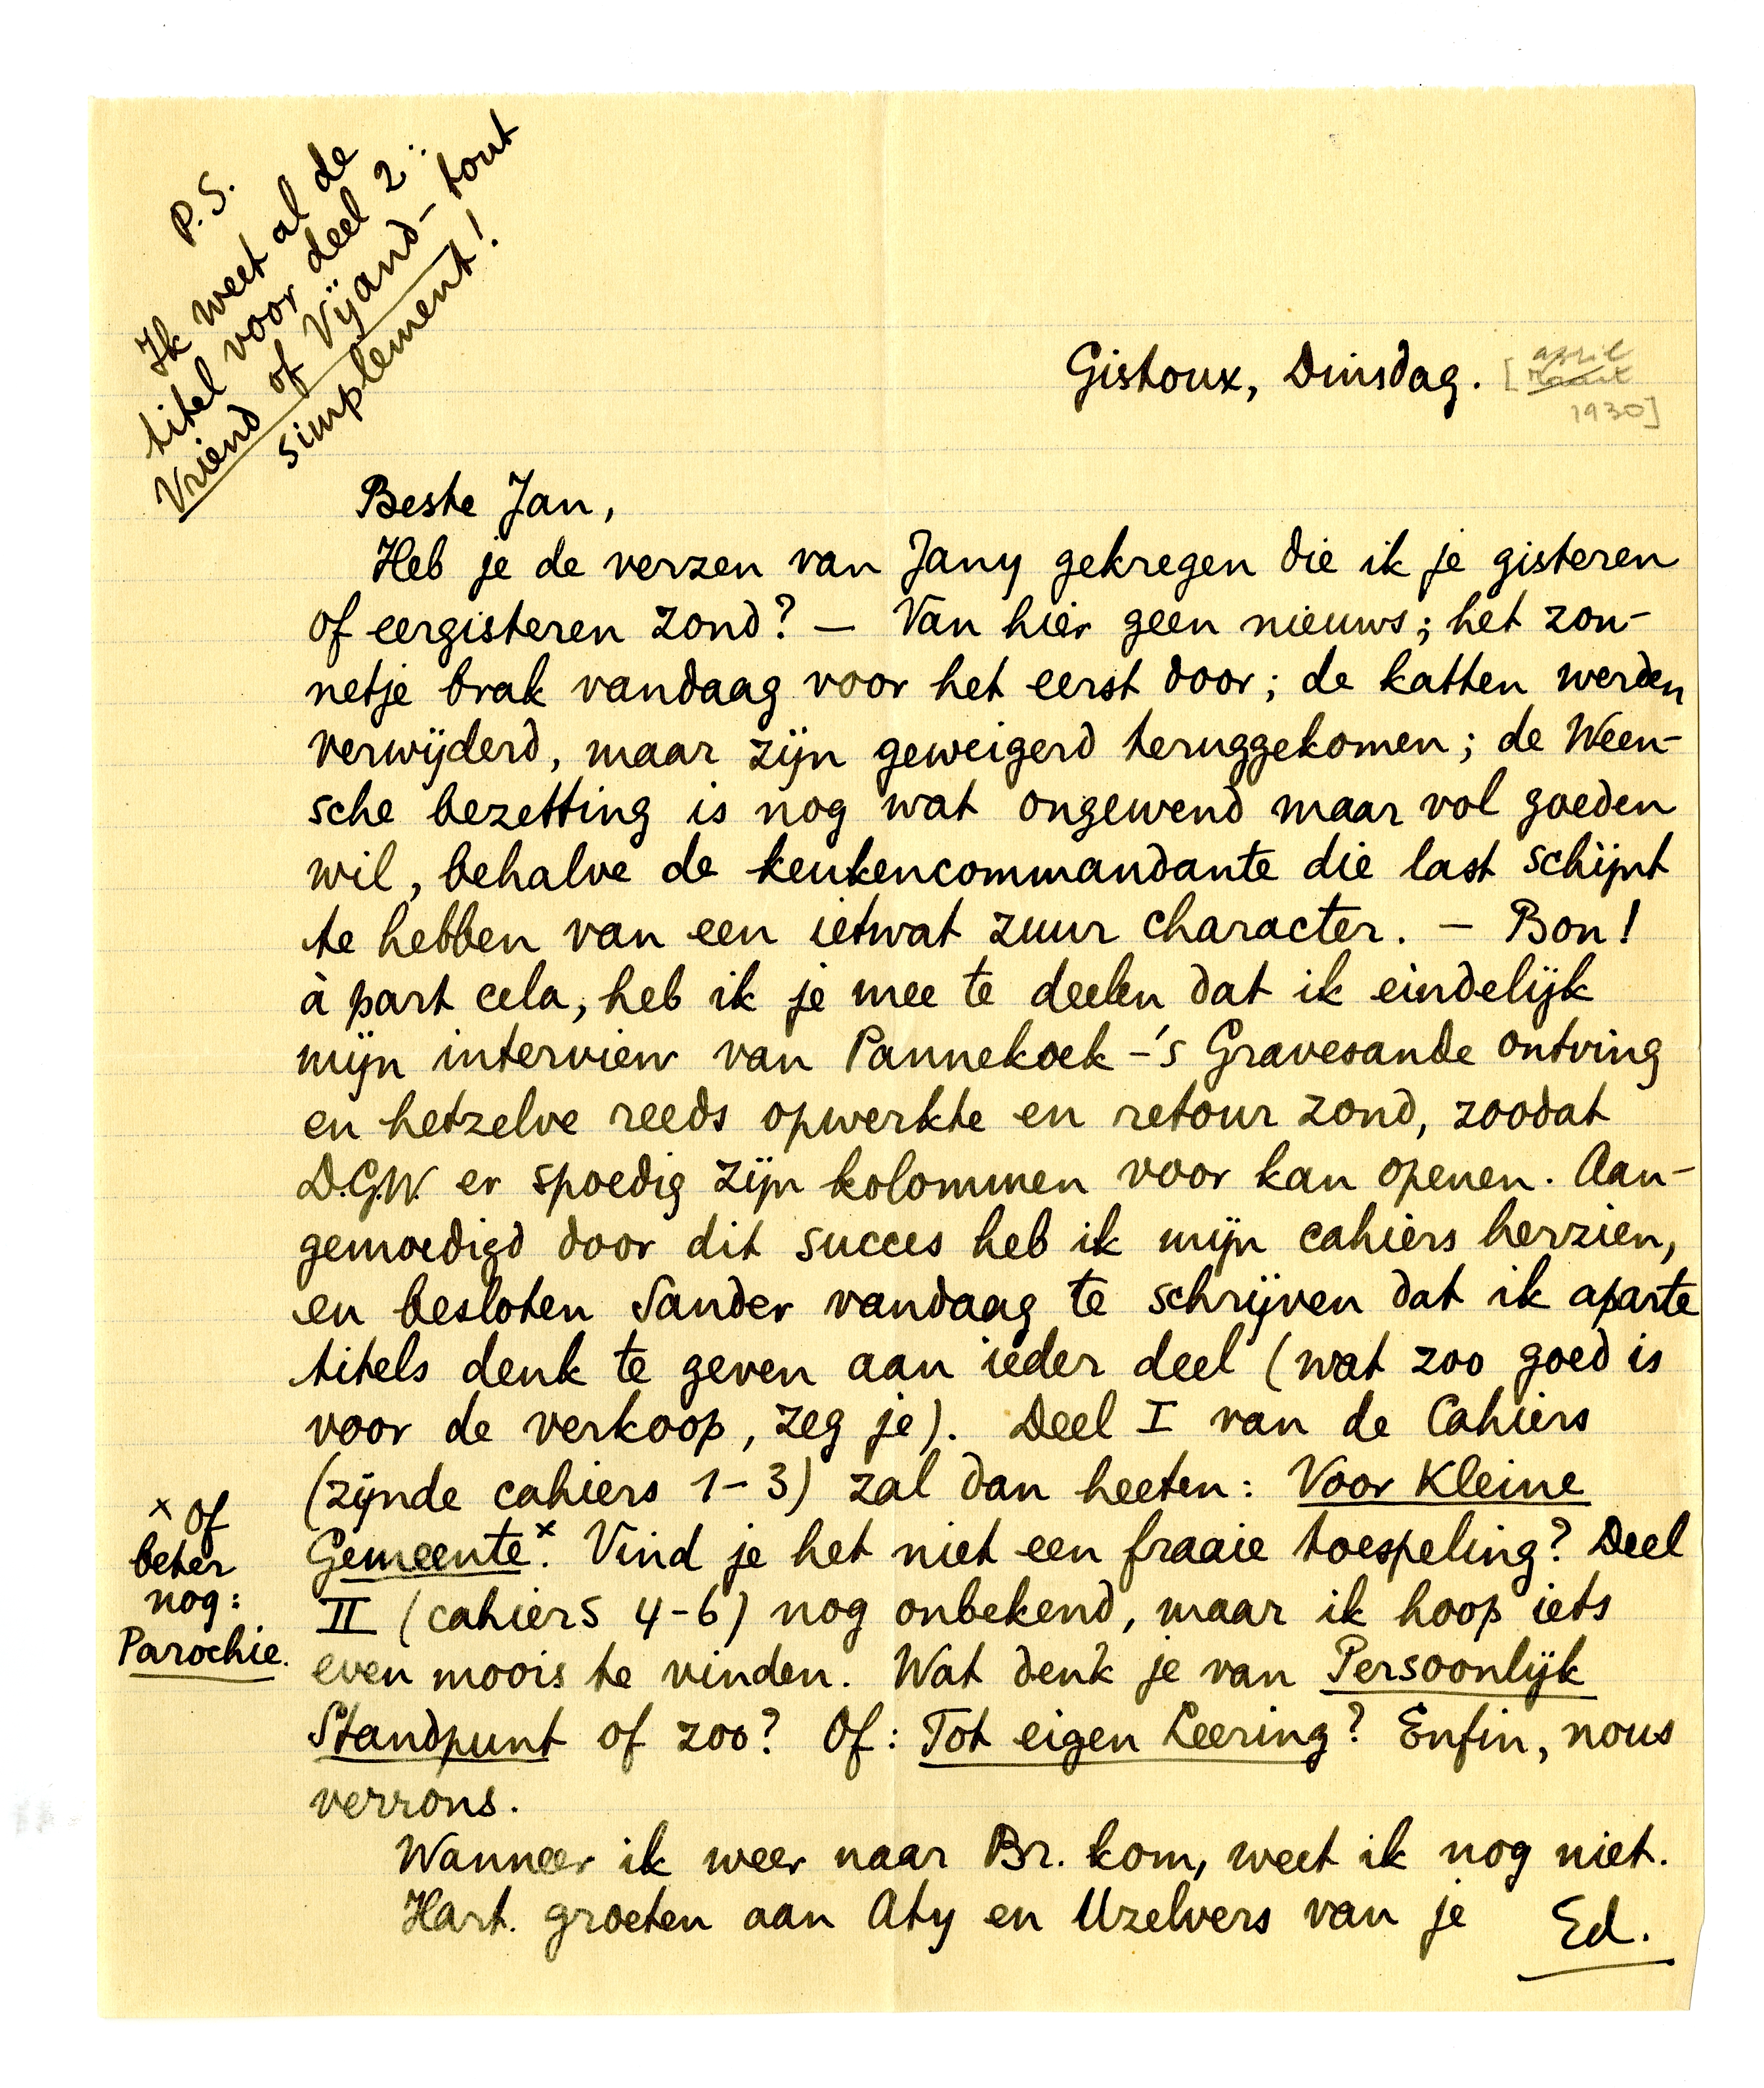 P.S.
Ik weet al de
titel voor deel 2:
Vriend of Vijand – tout
simplement!
Gistoux, Dinsdag. [april
Maart
1930]
Beste Jan,
Heb je de verzen van Jany gekregen die ik je gisteren
of eergisteren zond? — Van hier geen nieuws; het zon-
netje brak vandaag voor het eerst door; de katten werden
verwijderd, maar zijn geweigerd teruggekomen; de Ween-
sche bezetting is nog wat ongewend maar vol goeden
wil, behalve de keukencommandante die last schijnt
te hebben van een ietwat zuur character. — Bon!
à part cela, heb ik je mee te deelen dat ik eindelijk
mijn interview van Pannekoek-'s Gravesande ontving
en hetzelve reeds opwerkte en retour zond, zoodat
D.G.W. er spoedig zijn kolommen voor kan openen. Aan-
gemoedigd door dit succes heb ik mijn cahiers herzien,
en besloten Sander vandaag te schrijven dat ik aparte
titels denk te geven aan ieder deel (wat zoo goed is
voor de verkoop, zeg je). Deel I van de Cahiers
(zijnde cahiers 1-3) zal dan heeten: Voor Kleine
Gemeente.x Vind je het niet een fraaie toespeling? Deel
II (cahiers 4-6) nog onbekend, maar ik hoop iets
even moois te vinden. Wat denk je van Persoonlijk
Standpunt of zoo? Of: Tot eigen Leering? Enfin, nous
verrons.
Wanneer ik weer naar Br. kom, weet ik nog niet.
Hart. groeten aan Aty en Uzelvers van je Ed.
x Of
beter
nog:
Parochie.